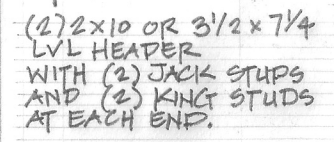 (2) 2x10 OR 3 1/2 x 7 1/4
LVL HEADER
WITH (2) JACK STUDS
AND (2) KING STUDS
AT EACH END.